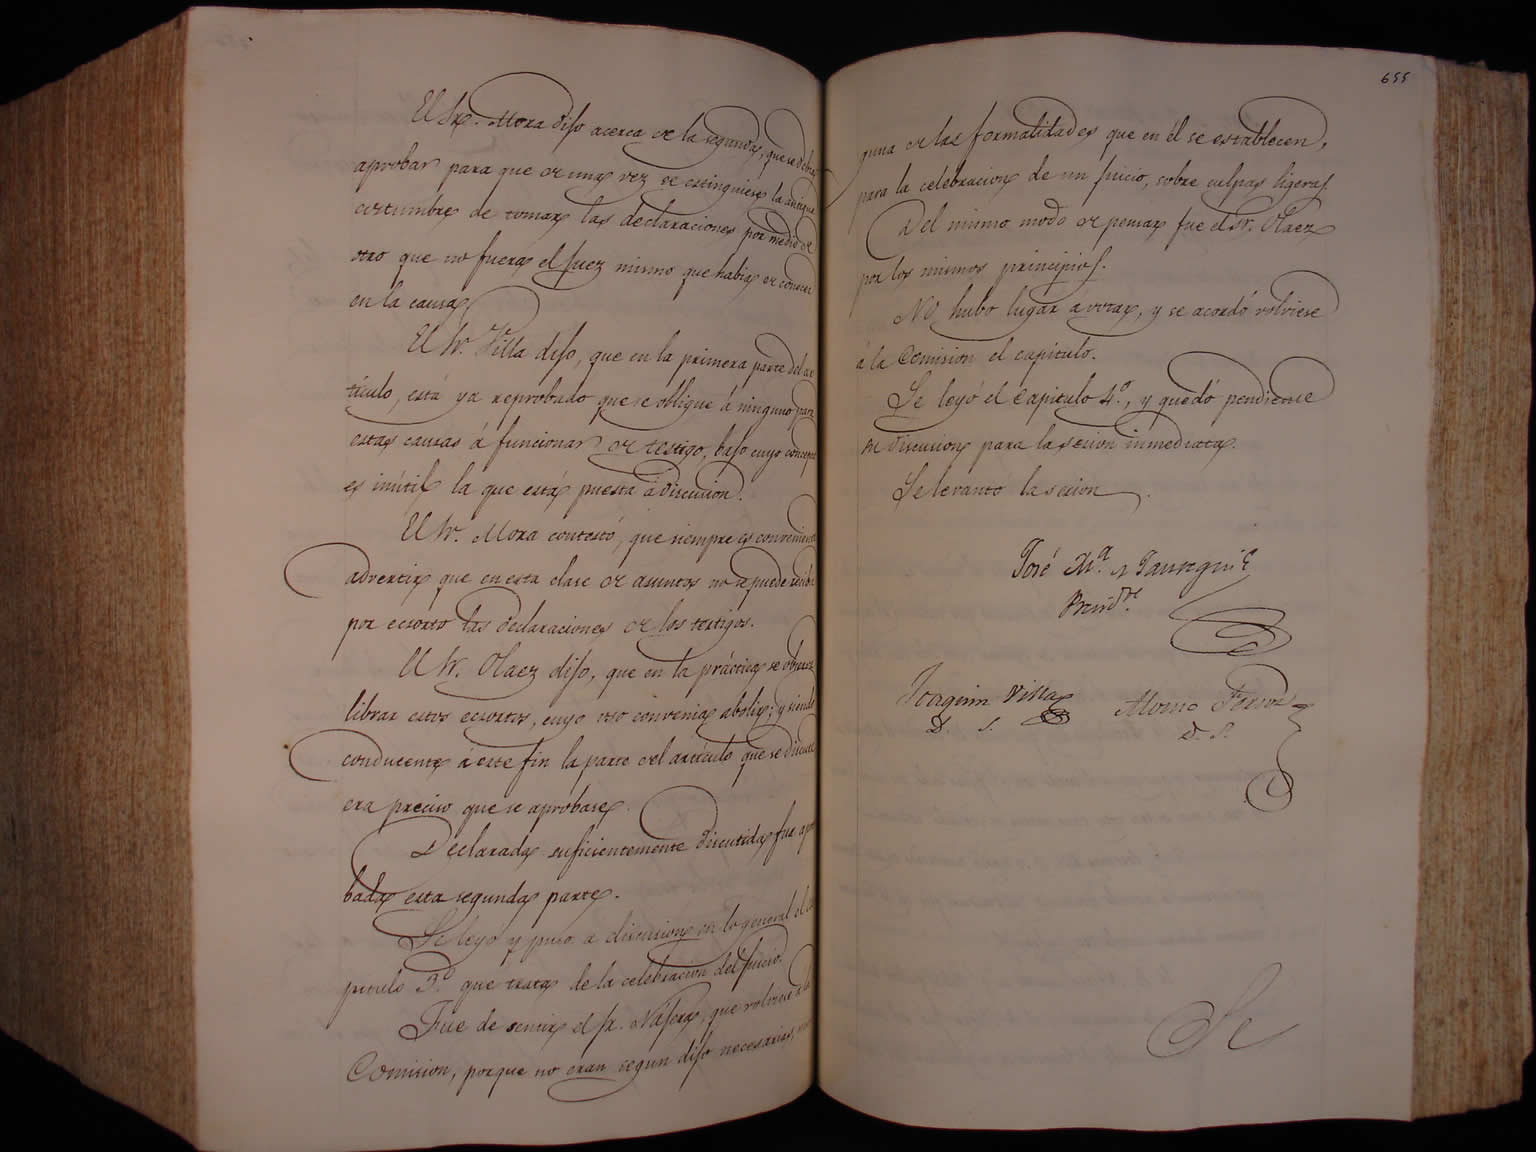 El Sr. Mora dijo acerca de la segunda, que se debia
aprobar para que de una vez se extinguiese la antigua
costumbre de tomar las declaraciones por medio de
otro que no fuera el juez mismo que habia de conocer
en la causa.
El Sr. Villa dijo, que en la primera parte del ar
tículo, está ya reprobado que se obligue á ninguno para
estas causas á funcionar de testigo, bajo cuyo concepto
es inútil la que está puesta á discusion.
El Sr. Mora contestó, que siempre es conveniente
advertir que en esta clase de asuntos no se puede recibir
por ecsorto las declaraciones de los testigos.
El Sr. Olaez dijo, que en la práctica se observa
librar estos ecsortos, cuyo uso convenia abolir; y siendo
conducente á este fin la parte del artículo que se discute
era preciso que se aprobase.
Declarada suficientemente discutida fue apro
bada esta segunda parte.
Se leyó y puso a discusion en lo general el ca
pitulo 3.º que trata de la celebracion del juicio.
Fue de sentir el Sr. Nájera, que volviese a la
Comision, porque no eran segun dijo necesarias,
655
guna de las formalidades que en él se establecen,
para la celebracion de un juicio, sobre culpas ligeras.
Del mismo modo de pensar fue el Sr. Olaez
por los mismos principios.
No hubo lugar a votar, y se acordó volviese
á la Comision el capitulo.
Se leyó el Capitulo 4.º, y quedó pendiente
su discusion para la sesion inmediata.
Se levantó la sesion.
José M.a de Jauregui
Presid.te
Joaquin Villa
D. S.
Alonso
D. S.
Se